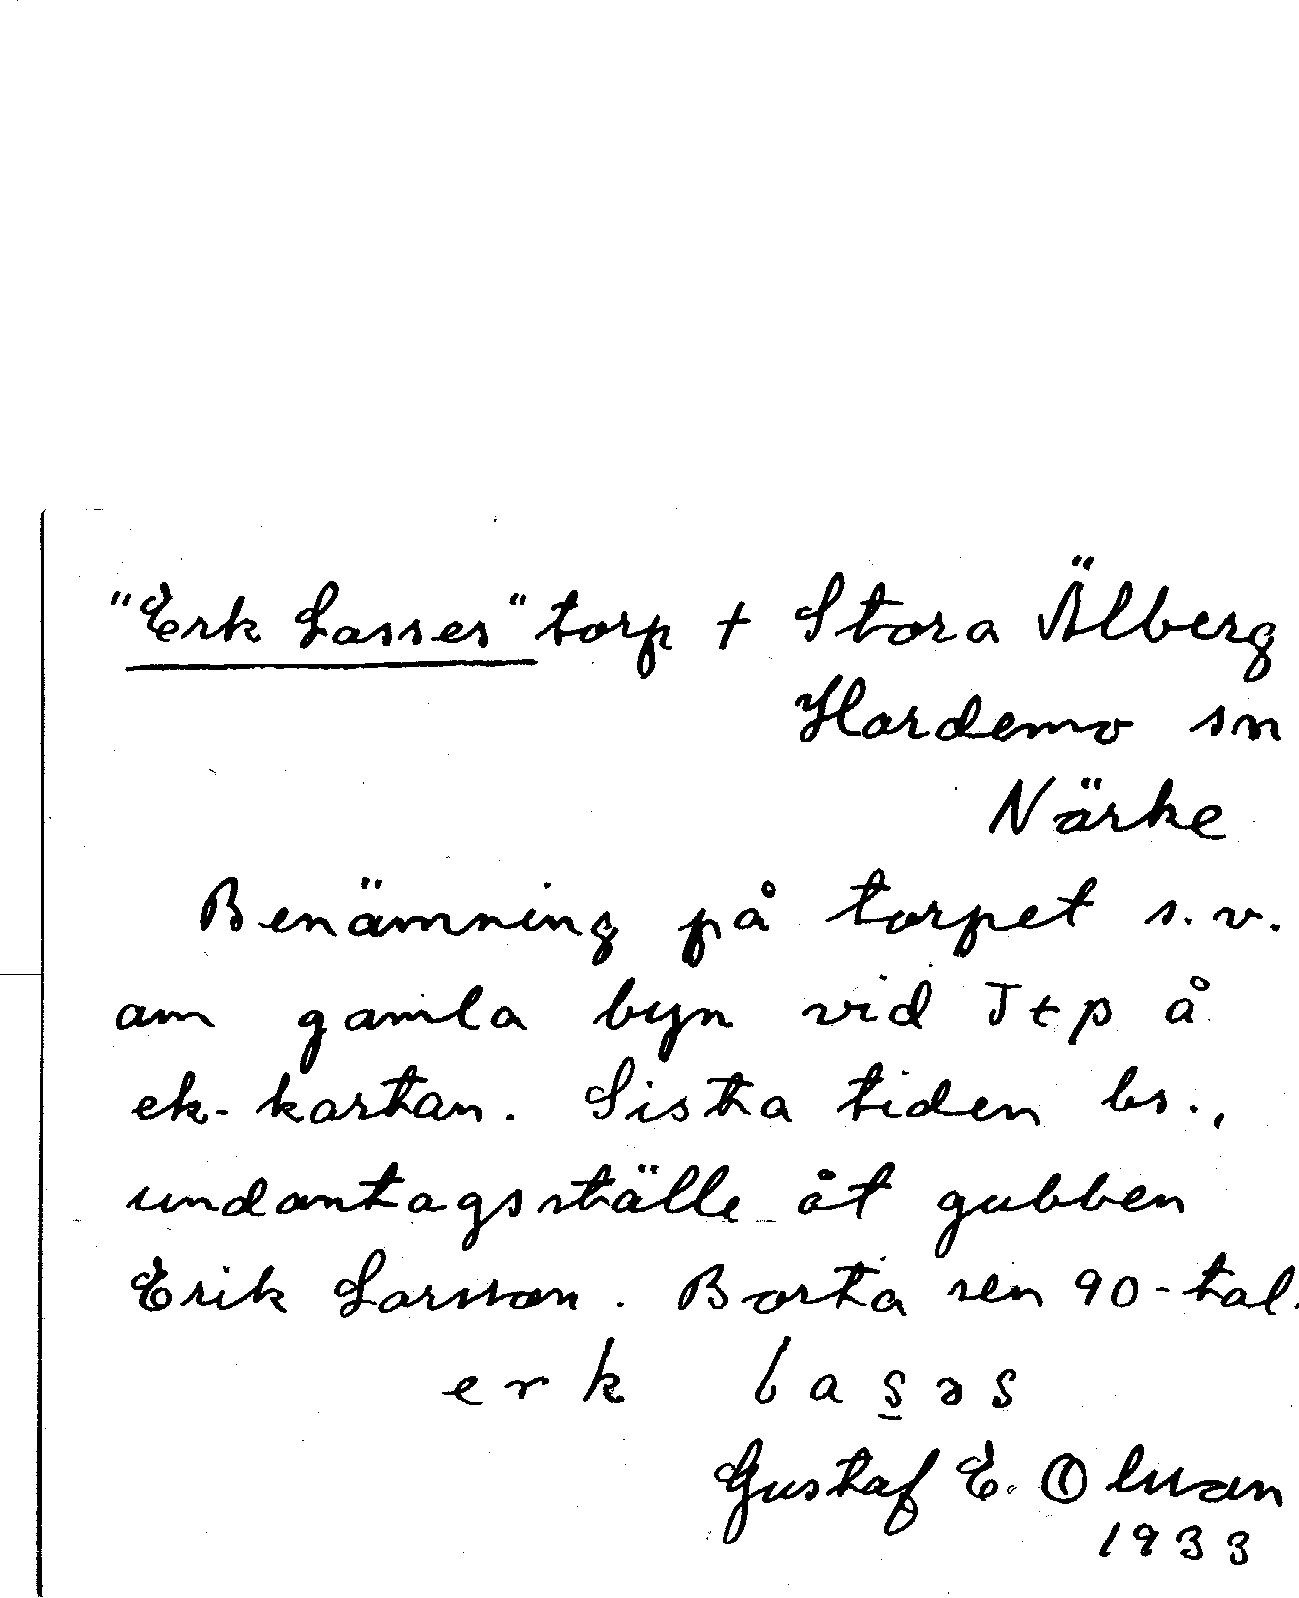 "Erk Lasses" torp + Stora Älberg
Hardemo sn
Närke
Benämning på torpet s.v.
om gamla byn vid Jtp å
ek-kartan. Sista tiden bs.,
undantagsställe åt gubben
Erik Larsson. Borta sen 90-tal.
erk las̲əs
Gustaf E. Olsson
1933